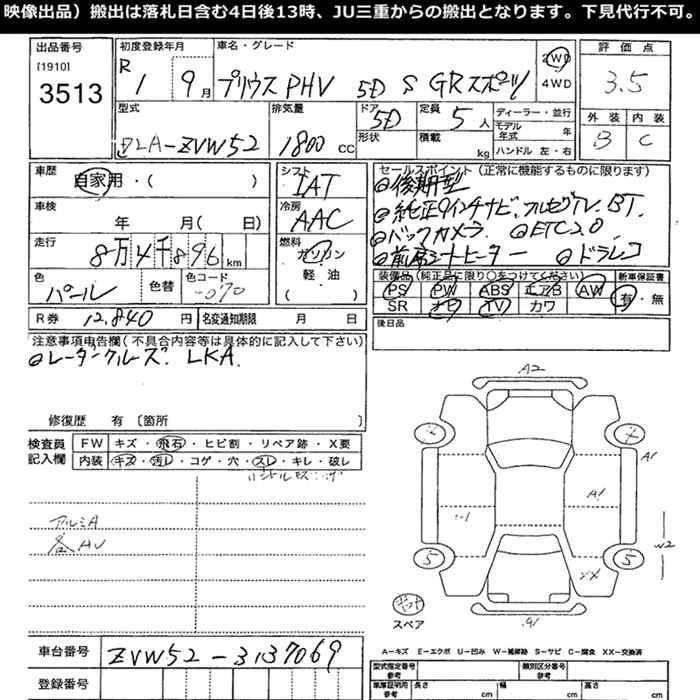 映像出品）搬出は落札日含む4日後13時、JU三重からの搬出となります。下見代行不可。
出品番号
[1910]
3513
初度登録年月
R 1 9月
車名・グレード
プリウス PHV 5D S GRスポーツ
2WD
4WD
評価点
3.5
外装 内装
B C
型式
DLA-ZVW52
排気量
1800 CC
ドア 5D
形状
定員 5人
積載 kg
ディーラー・並行
モデル年式 年
ハンドル 左・右
車歴
自家用・( )
車検
年 月( 日)
走行
8万4千896km
色
パール
色替
色コード
-070
シフト
IAT
冷房
AAC
燃料
ガソリン
軽油
( )
セールスポイント（正常に機能するものに限ります）
◎後期型
◎純正9インチナビ、フルセグTV、BT.
◎バックカメラ ◎ETC2.0
◎前席シートヒーター ◎ドラレコ
装備品（純正品に限り○をつけてください）
PS PW ABS エアB AW
SR ナビ TV カワ
新車保証書
有・無
R券 12,840円
名変通知期限 月 日
後日品
注意事項申告欄（不具合内容等は具体的に記入して下さい）
◎レーダークルーズ、LKA.
修復歴 有〔箇所 〕
検査員記入欄
FW キズ・飛石・ヒビ割・リペア跡・X要
内装 キズ・汚レ・コゲ・穴・スレ・キレ・破レ
アルミA
各AU
A2
A1
A1
W2
XX
5
5
A1
スペア
A－キズ E－エクボ U－凹み W－補修跡 S－サビ C－腐食 XX－交換済
車台番号
ZVW52-3137069
登録番号
型式指定番号
類別区分番号
車庫証明用参考 長さ cm 幅 cm 高さ cm